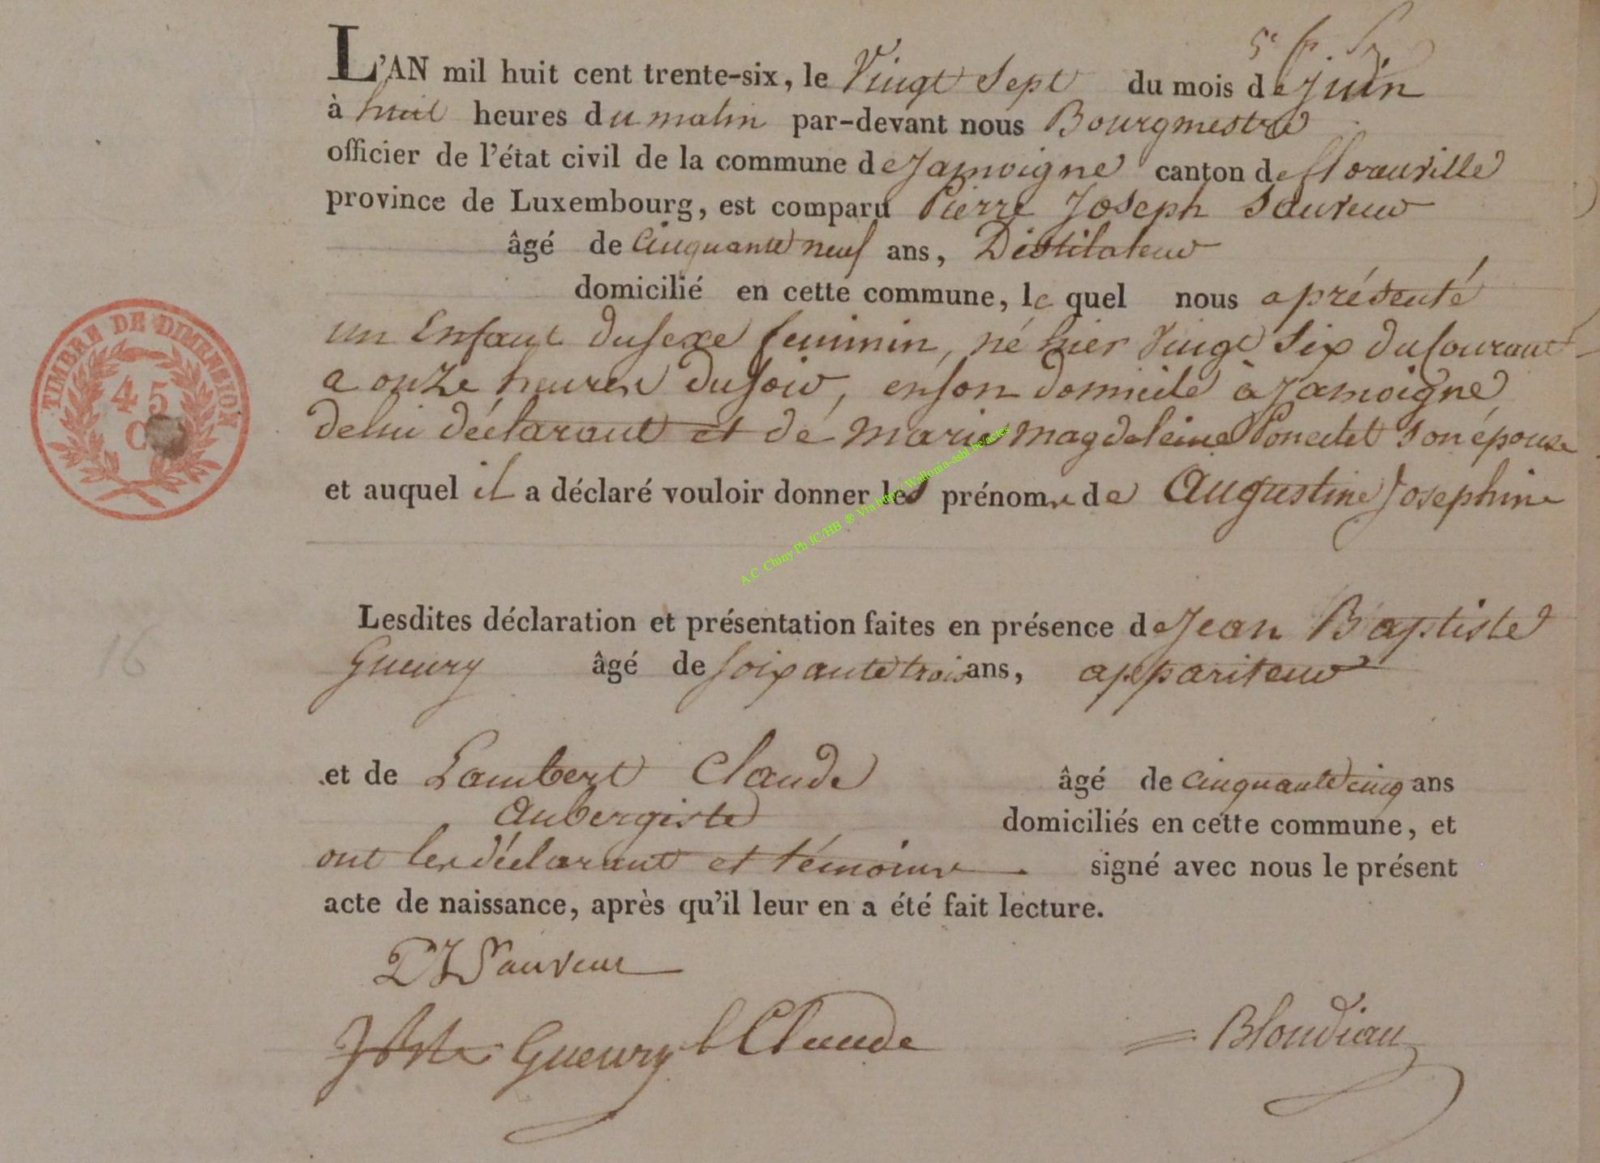 L'AN mil huit cent trente-six, le Vingt Sept du mois de juin
à huit heures du matin par-devant nous Bourgmestre
officier de l'état civil de la commune de Jamoigne canton de florenville
province de Luxembourg, est comparu Pierre Joseph Sauveur
âgé de Cinquante neuf ans, Distilateur
domicilié en cette commune, le quel nous a présenté
un Enfant du sexe feminin, né hier Vingt Six du Courant
a onze heures du soir, en son domicile à Jamoigne
de lui déclarant et de marie magdeleine Poncelet son épouse
et auquel il a déclaré vouloir donner les prénoms de Augustine Josephine
Lesdites déclaration et présentation faites en présence de Jean Baptiste
Gueury âgé de soixante trois ans, appariteur
et de Lambert Claude âgé de cinquante cinq ans
Aubergiste domiciliés en cette commune, et
ont les déclarant et témoins signé avec nous le présent
acte de naissance, après qu'il leur en a été fait lecture.
PJ Sauveur
Gueury L Claude Blondiau
TIMBRE DE DIMENSION
45
C
16